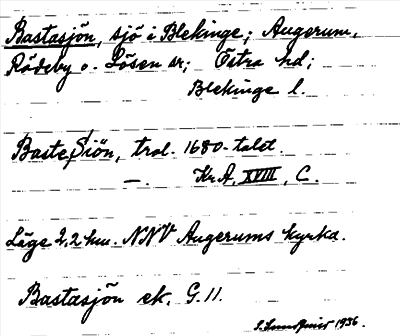 Bastasjön, sjö i Blekinge; Augerum,
Rödeby o. Lösen sr; Östra hd;
Blekinge l.
Baste Siön, trol. 1680-talet.
—. Kr.A. XVIII, C.
Läge 2,2 km. NNV Augerums kyrka.
Bastasjön ek. G.11.
1936.